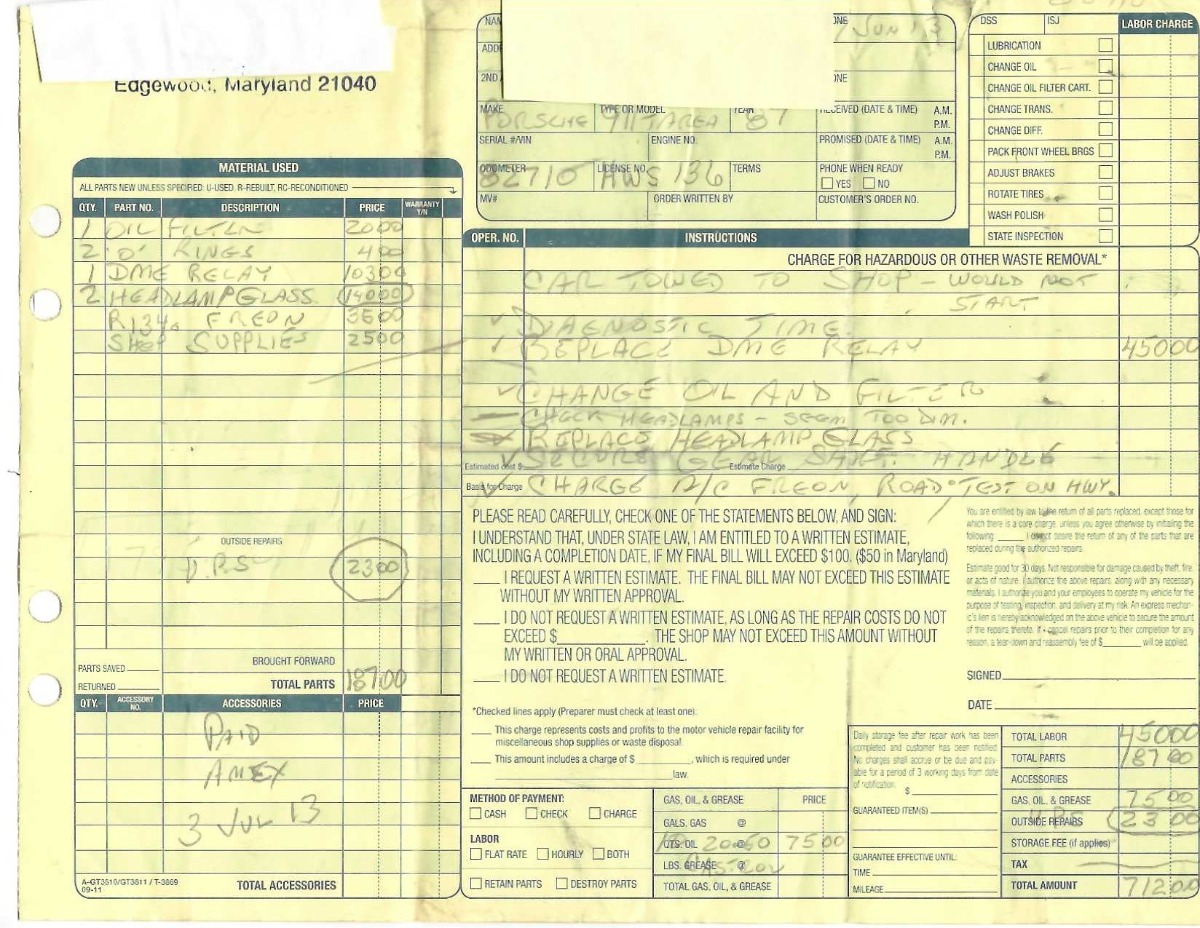 Edgewood, Maryland 21040
7 JUN 13
MAKE TYPE OR MODEL YEAR
PORSCHE 911 TARGA 87
RECEIVED (DATE & TIME) A.M.
P.M.
SERIAL #/VIN ENGINE NO. PROMISED (DATE & TIME) A.M.
P.M.
ODOMETER LICENSE NO. TERMS PHONE WHEN READY
82710 HWS 136
YES NO
MV# ORDER WRITTEN BY CUSTOMER'S ORDER NO.
DSS ISJ LABOR CHARGE
LUBRICATION
CHANGE OIL
CHANGE OIL FILTER CART.
CHANGE TRANS.
CHANGE DIFF.
PACK FRONT WHEEL BRGS
ADJUST BRAKES
ROTATE TIRES
WASH POLISH
STATE INSPECTION
MATERIAL USED
ALL PARTS NEW UNLESS SPECIFIED: U-USED, R-REBUILT, RC-RECONDITIONED
QTY. PART NO. DESCRIPTION PRICE WARRANTY Y/N
1 OIL FILTER 2000
2 'O' RINGS 400
1 DME RELAY 10300
2 HEADLAMP GLASS 14000
R134a FREON 3500
SHOP SUPPLIES 2500
OUTSIDE REPAIRS
U.P.S 2300
PARTS SAVED
BROUGHT FORWARD
RETURNED
TOTAL PARTS 18700
QTY. ACCESSORY NO. ACCESSORIES PRICE
PAID
AMEX
3 JUL 13
A-GT3810/GT3811 / T-3869
09-11
TOTAL ACCESSORIES
OPER. NO. INSTRUCTIONS
CHARGE FOR HAZARDOUS OR OTHER WASTE REMOVAL*
CAR TOWED TO SHOP - WOULD NOT
START
✓ DIAGNOSTIC TIME.
✓ REPLACE DME RELAY 45000
✓ CHANGE OIL AND FILTER
CHECK HEADLAMPS - SEEM TOO DIM.
REPLACE HEADLAMP GLASS
✓ SECURE GEAR SHIFT HANDLE
Estimated cost $ Estimate Charge
Basis for Charge
✓ CHARGE A/C FREON, ROAD TEST ON HWY.
PLEASE READ CAREFULLY, CHECK ONE OF THE STATEMENTS BELOW, AND SIGN:
I UNDERSTAND THAT, UNDER STATE LAW, I AM ENTITLED TO A WRITTEN ESTIMATE,
INCLUDING A COMPLETION DATE, IF MY FINAL BILL WILL EXCEED $100. ($50 in Maryland)
I REQUEST A WRITTEN ESTIMATE. THE FINAL BILL MAY NOT EXCEED THIS ESTIMATE
WITHOUT MY WRITTEN APPROVAL.
I DO NOT REQUEST A WRITTEN ESTIMATE, AS LONG AS THE REPAIR COSTS DO NOT
EXCEED $ . THE SHOP MAY NOT EXCEED THIS AMOUNT WITHOUT
MY WRITTEN OR ORAL APPROVAL.
I DO NOT REQUEST A WRITTEN ESTIMATE.
*Checked lines apply (Preparer must check at least one):
This charge represents costs and profits to the motor vehicle repair facility for
miscellaneous shop supplies or waste disposal.
This amount includes a charge of $ , which is required under
law.
You are entitled by law to the return of all parts replaced, except those for
which there is a core charge, unless you agree otherwise by initialing the
following: I do not desire the return of any of the parts that are
replaced during the authorized repairs.
Estimate good for 30 days. Not responsible for damage caused by theft, fire,
or acts of nature. I authorize the above repairs, along with any necessary
materials. I authorize you and your employees to operate my vehicle for the
purpose of testing, inspection, and delivery at my risk. An express mechan-
ic's lien is hereby acknowledged on the above vehicle to secure the amount
of the repairs thereto. If I cancel repairs prior to their completion for any
reason, a tear-down and reassembly fee of $ will be applied.
SIGNED
DATE
METHOD OF PAYMENT:
CASH CHECK CHARGE
LABOR
FLAT RATE HOURLY BOTH
RETAIN PARTS DESTROY PARTS
GAS, OIL, & GREASE PRICE
GALS. GAS @
QTS. OIL @ 20-50 7500
LBS. GREASE @
TOTAL GAS, OIL, & GREASE
Daily storage fee after repair work has been
completed and customer has been notified.
No charges shall accrue or be due and pay-
able for a period of 3 working days from date
of notification.
$
GUARANTEED ITEM(S)
GUARANTEE EFFECTIVE UNTIL:
TIME
MILEAGE
TOTAL LABOR 45000
TOTAL PARTS 18700
ACCESSORIES
GAS, OIL, & GREASE 7500
OUTSIDE REPAIRS UPS 2300
STORAGE FEE (if applies)
TAX
TOTAL AMOUNT 71200